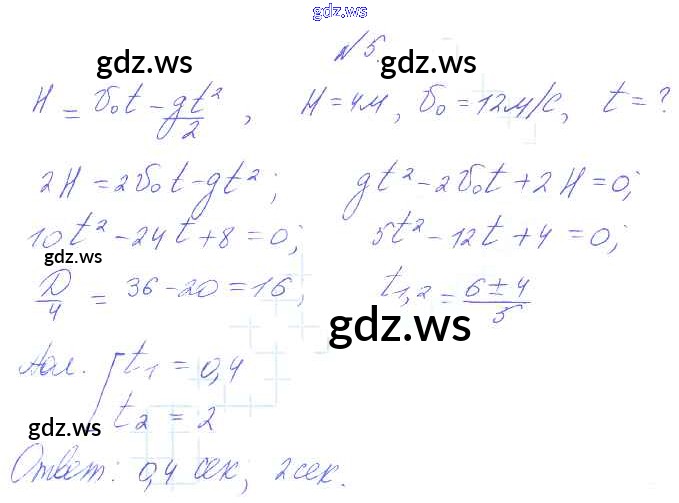 gdz.ws
№5.
gdz.ws gdz.ws
H = υ₀t - gt²/2, H=4м, υ₀=12м/с, t=?
2H = 2υ₀t - gt²; gt² - 2υ₀t + 2H = 0;
10t² - 24t + 8 = 0; 5t² - 12t + 4 = 0;
gdz.ws
D/4 = 36 - 20 = 16, t₁,₂ = (6±4)/5
gdz.ws
[t₁ = 0,4
t₂ = 2
gdz.ws
Ответ: 0,4 сек, 2 сек.
gdz.ws gdz.ws